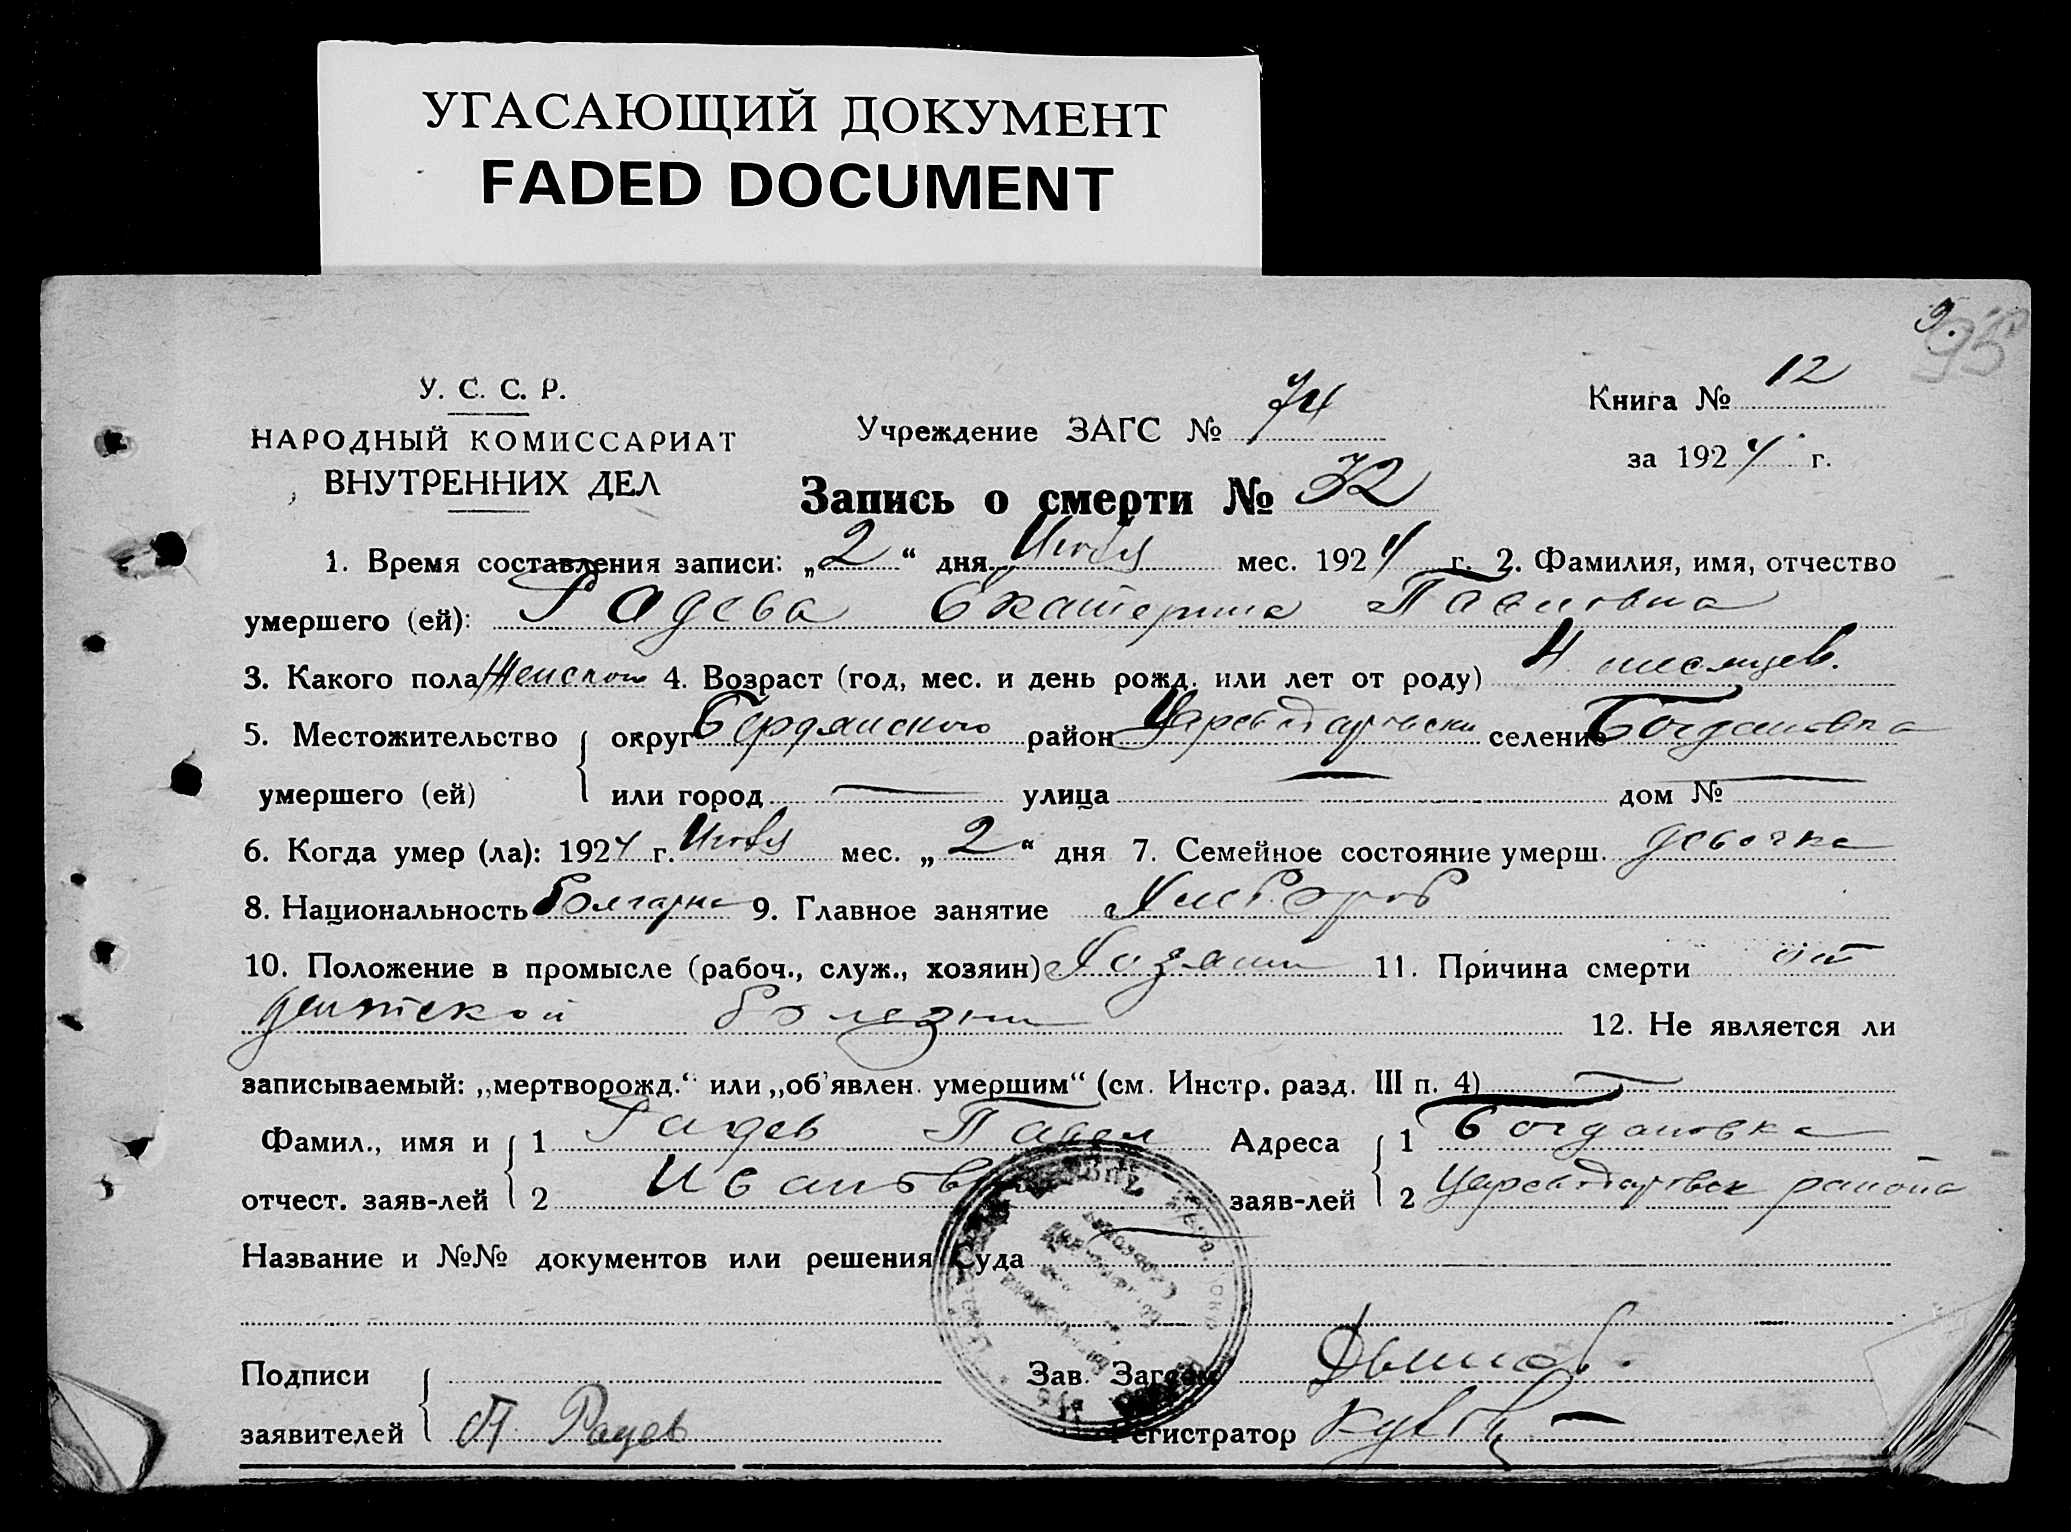 УГАСАЮЩИЙ ДОКУМЕНТ
FADED DOCUMENT
95
У. С. С. Р.
НАРОДНЫЙ КОМИССАРИАТ
ВНУТРЕННИХ ДЕЛ
Учреждение ЗАГС № 74
Книга № 12
за 1924 г.
Запись о смерти № 32
1. Время составления записи: „2“ дня мес. 1924 г. 2. Фамилия, имя, отчество
умершего (ей): Радева Екатерина Павловна
3. Какого пола Женского 4. Возраст (год, мес. и день рожд. или лет от роду) 4 месяцев.
5. Местожительство округ Бердянского район Цареводаровски селение Богдановка
умершего (ей) или город — улица — дом № —
6. Когда умер (ла): 1924 г. мес. „2“ дня 7. Семейное состояние умерш. девочка
8. Национальность Болгарка 9. Главное занятие Хлебороб
10. Положение в промысле (рабоч., служ., хозяин) Хозяин 11. Причина смерти от
детской болезни 12. Не является ли
записываемый: „мертворожд.“ или „об'явлен. умершим“ (см. Инстр. разд. III п. 4)
Фамил., имя и 1 Радев Павел Адреса 1 Богдановка
отчест. заяв-лей 2 заяв-лей 2 Цареводаровск района
Название и №№ документов или решения Суда
Подписи Зав. Загсом
заявителей П Радев Регистратор